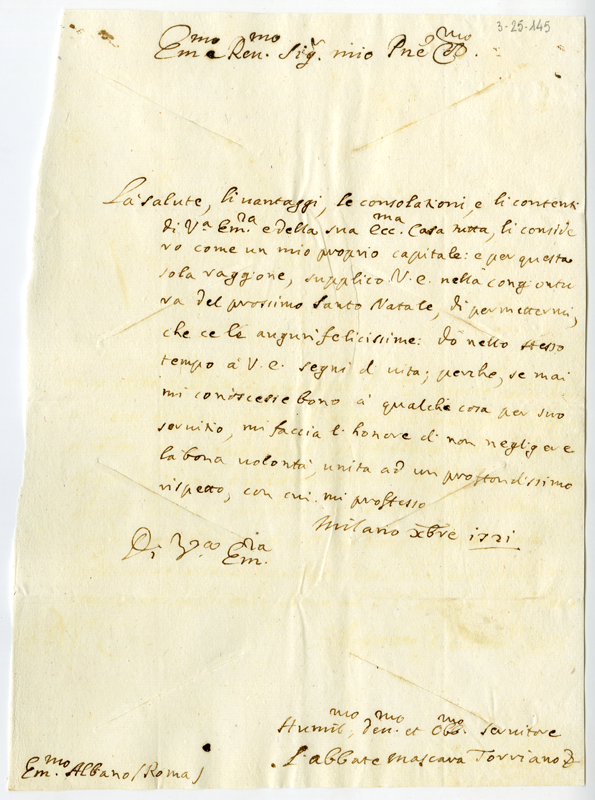 3-25-145
Em.mo e Reu.mo Sig.r mio P.ne Col.mo
La salute, li uantaggi, le consolazioni, e li contenti
di V.a Em.za e della sua Ecc.ma Casa tutta, li conside
ro come un mio proprio capitale: e per questa
sola raggione, supplico V. E. nella congiontu
ra del prossimo Santo Natale, di permettermi,
che ce le auguri felicissime: dò nello stesso
tempo à V. E. segni d uita; perche, se mai
mi conoscesse bono à qualche cosa per suo
seruitio, mi faccia l'honore di non negligere
la bona uolontà, unita ad un profondissimo
rispetto, con cui mi professo
Milano xbre 1721
Di V.ra Em.za
Humil.mo, deu.mo et Obb.mo Seruitore
L'abbate Mascara Torriano
Em.mo Albano (Roma)